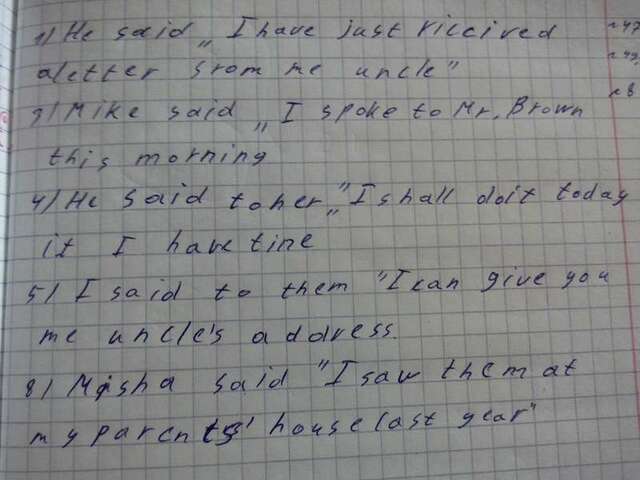 1) He said „ I have just riceived
a letter srom me uncle"
3) Mike said „ I spoke to Mr. Brown
this morning
4) He said to her „"I shall do it today
it I have time
5) I said to them "I can give you
me uncle's address.
8) Misha said "I saw them at
my parents' house last year"